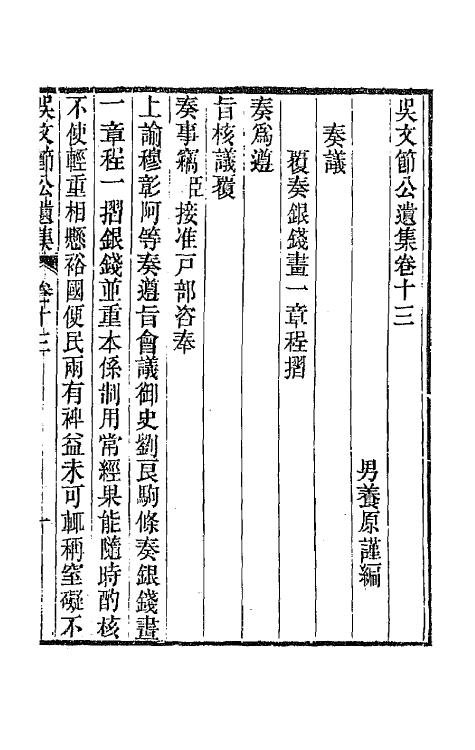 吳文節公遺集卷十三
男養原謹編
奏議
覆奏銀錢畫一章程摺
奏爲遵
旨核議覆
奏事竊臣接准戶部咨奉
上諭穆彰阿等奏遵旨會議御史劉良駒條奏銀錢畫
一章程一摺銀錢並重本係制用常經果能隨時酌核
不使輕重相懸裕國便民兩有裨益未可輒稱窒礙不
吳文節公遺集 卷十三 一